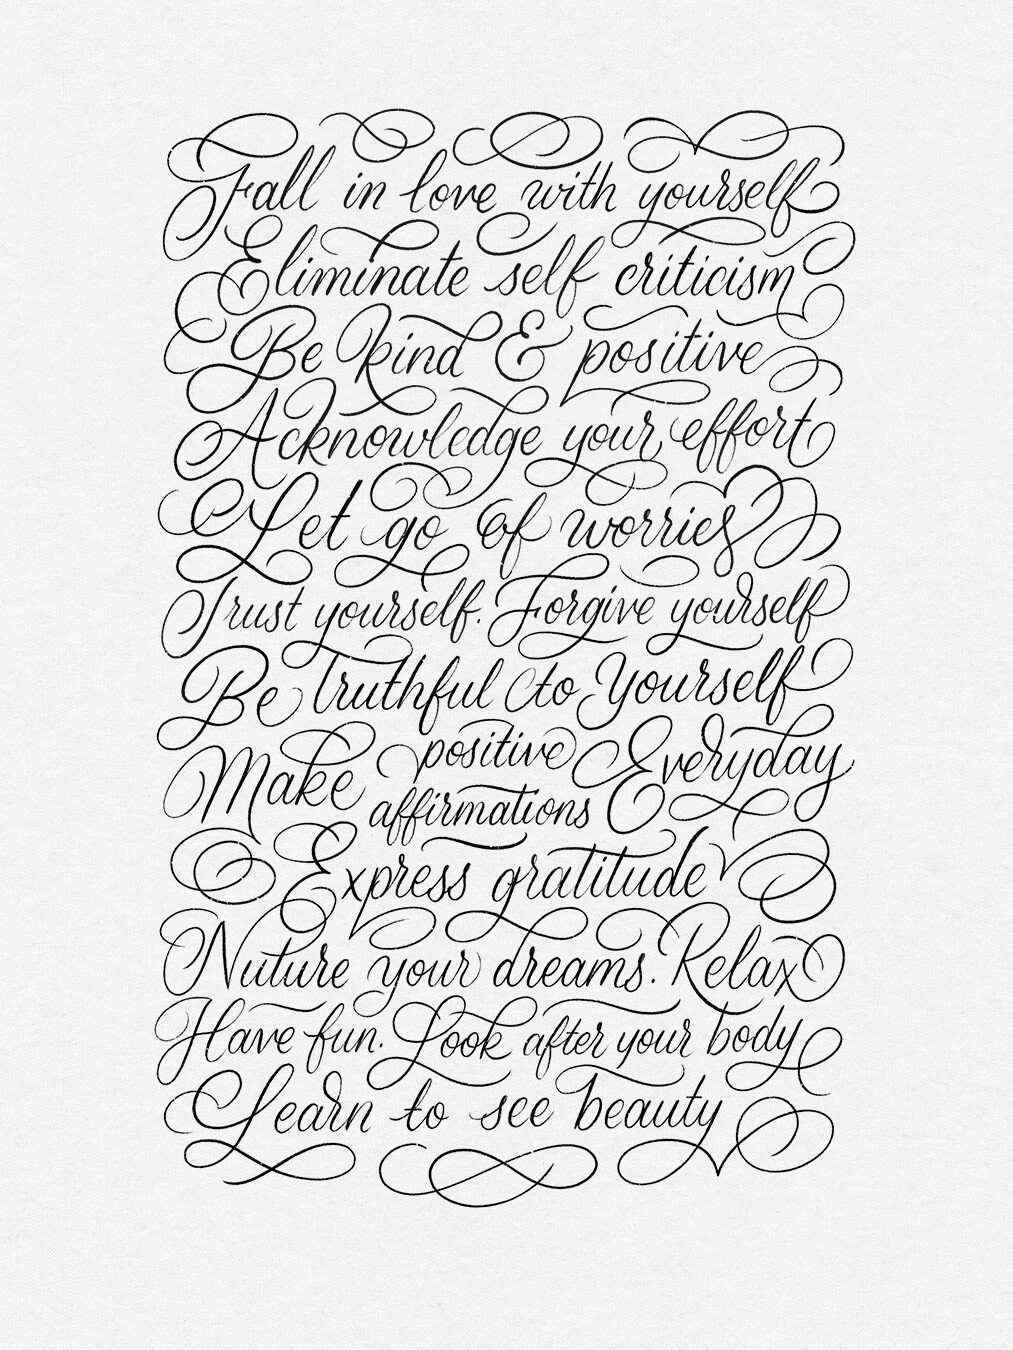 Fall in love with yourself
Eliminate self criticism
Be kind & positive
Acknowledge your effort
Let go of worries
Trust yourself. Forgive yourself
Be truthful to yourself
Make positive affirmations Everyday
Express gratitude
Nuture your dreams. Relax
Have fun. Look after your body
Learn to see beauty